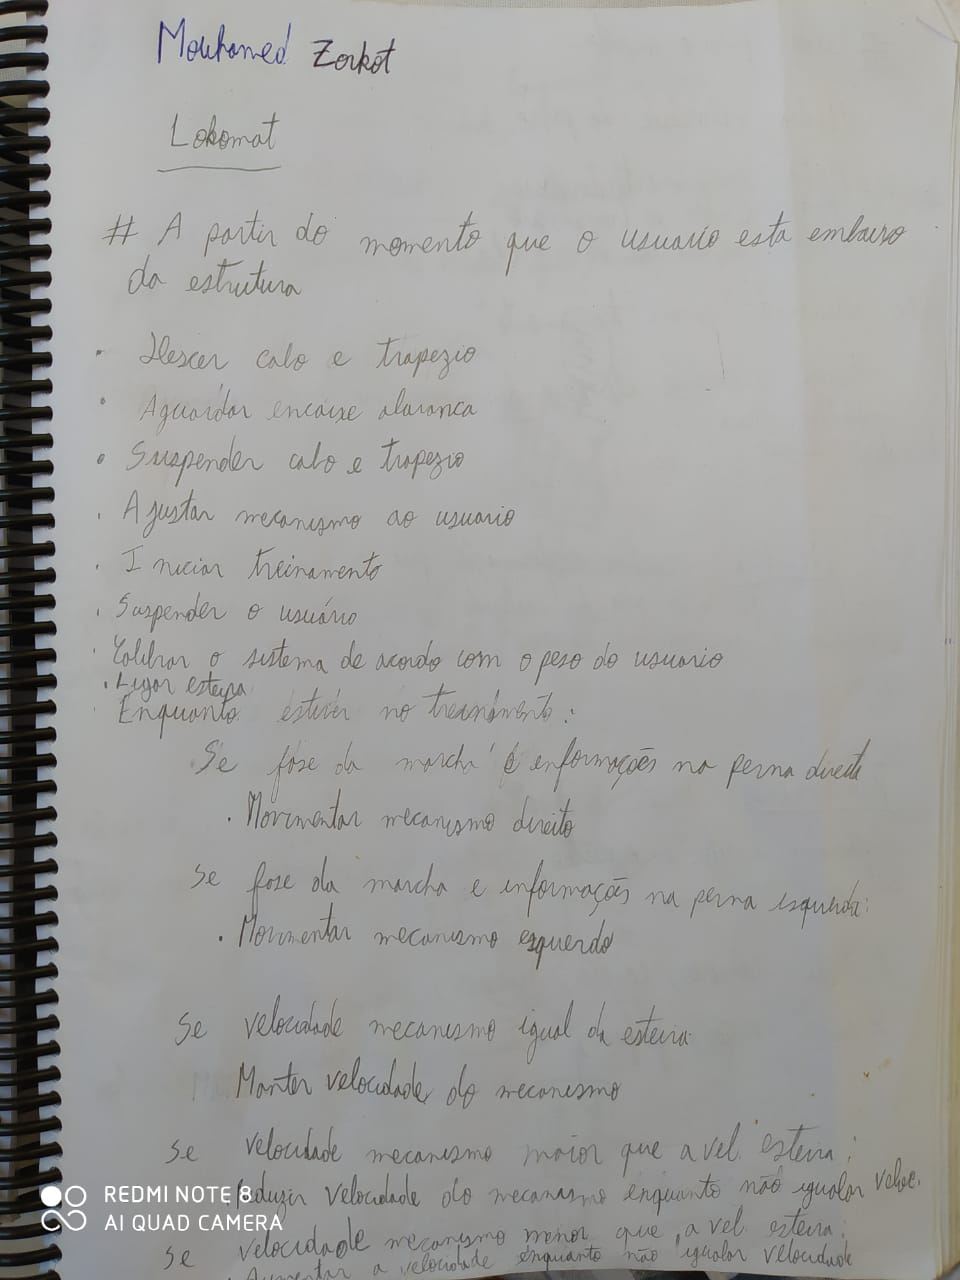 Mouhamed Zorkot
Lokomat
# A partir do momento que o usuario esta embaixo
da estrutura
• Descer cabo e trapezio
• Aguardar encaixe alavanca
• Suspender cabo e trapezio
• Ajustar mecanismo ao usuario
• Iniciar treinamento
• Suspender o usuário
• Calibrar o sistema de acordo com o peso do usuario
• Ligar esteira
• Enquanto estiver no treinamento:
Se fase da marcha e informações na perna direita
• Movimentar mecanismo direito
Se fase da marcha e informações na perna esquerda:
• Movimentar mecanismo esquerdo
Se velocidade mecanismo igual da esteira:
Manter velocidade do mecanismo
Se velocidade mecanismo maior que a vel. esteira:
Reduzir velocidade do mecanismo enquanto não igualar veloc.
Se velocidade mecanismo menor que a vel. esteira:
• Aumentar a velocidade enquanto não igualar velocidade
REDMI NOTE 8
AI QUAD CAMERA